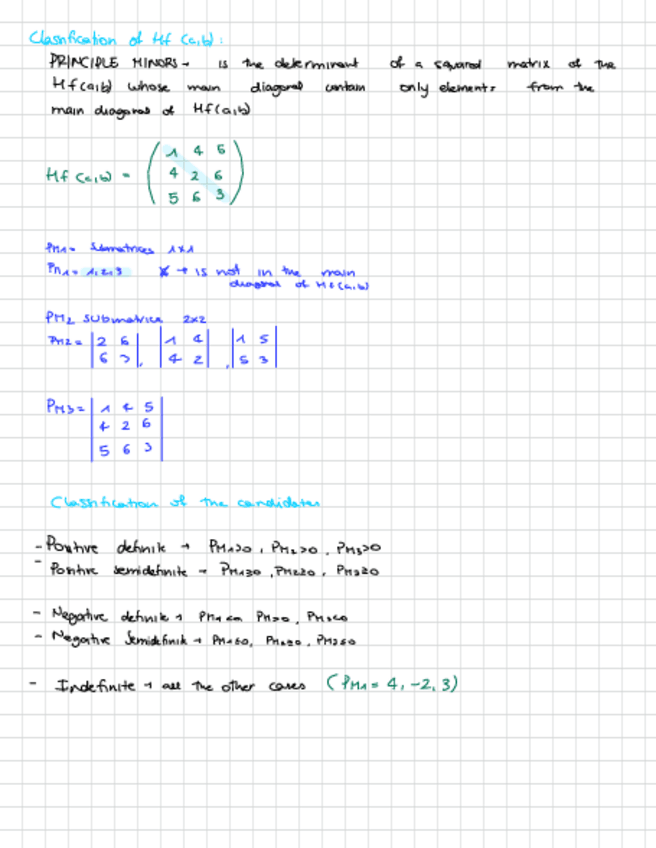 Classification of Hf (a,b):
PRINCIPLE MINORS → is the determinant of a squared matrix of the
Hf(a,b) whose main diagonal contain only elements from the
main diagonal of Hf(a,b)
Hf (a,b) = ( 1 4 5
4 2 6
5 6 3 )
PM1 = submatrices 1x1
PM1 = 1, 2, 3 X → is not in the main
diagonal of Hf(a,b)
PM2 submatrice 2x2
PM2 = | 2 6 | , | 1 4 | , | 1 5 |
| 6 3 | | 4 2 | | 5 3 |
PM3 = | 1 4 5 |
4 2 6
5 6 3
Classification of the candidates
- Positive definite → PM1>0, PM2>0, PM3>0
- Positive semidefinite → PM1≥0, PM2≥0, PM3≥0
- Negative definite → PM1<0, PM2>0, PM3<0
- Negative semidefinite → PM1≤0, PM2≥0, PM3≤0
- Indefinite → all the other cases (PM1 = 4, -2, 3)